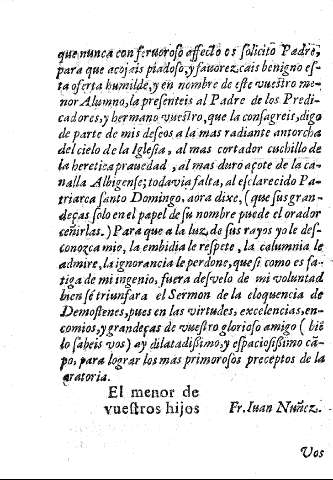 que nunca con feruoroso affecto os solicito Padre,
para que acojais piadoso, y fauorezcais benigno es-
ta oferta humilde, y en nombre de este vuestro me-
nor Alumno, la presenteis al Padre de los Predi-
cadores, y hermano vuestro, que la consagreis, digo
de parte de mis deseos a la mas radiante antorcha
del cielo de la Iglesia, al mas cortador cuchillo de
la heretica prauedad, al mas duro açote de la ca-
nalla Albigense; todavia falta, al esclarecido Pa-
triarca santo Domingo, aora dixe, (que sus gran-
deças solo en el papel de su nombre puede el orador
ceñirlas.) Para que a la luz, de sus rayos yo le des-
conozca mio, la embidia le respete, la calumnia le
admire, la ignorancia le perdone, que si como es fa-
tiga de mi ingenio, fuera desvelo de mi voluntad
bien sé triunfara el Sermon de la eloquencia de
Demostenes, pues en las virtudes, excelencias, en-
comios, y grandeças de vuestro glorioso amigo (biē
lo sabeis vos) ay dilatadissimo, y espaciosissimo cā-
po, para lograr los mas primorosos preceptos de la
oratoria.
El menor de
vuestros hijos Fr. Iuan Nuñez.
Vos